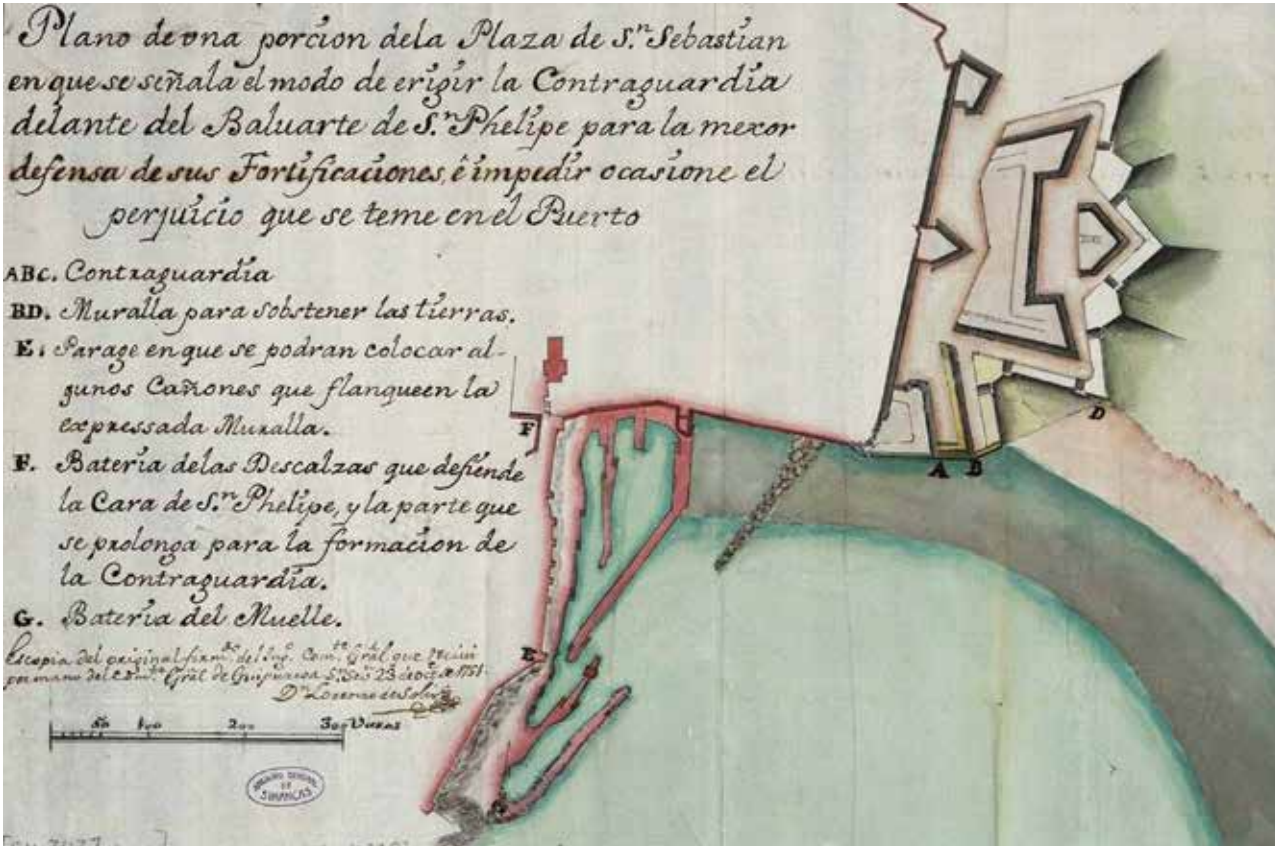 Plano de vna porcion dela Plaza de S.ⁿ Sebastian
en que se señala el modo de erigir la Contraguardia
delante del Baluarte de S.ⁿ Phelipe para la mexor
defensa de sus Fortificaciones, è impedir ocasione el
perjuicio que se teme en el Puerto
ABC. Contraguardia
BD. Muralla para sobstener las tierras.
E. Parage en que se podran colocar al-
gunos Cañones que flanqueen la
expressada Muralla.
F. Bateria delas Descalzas que defiende
la Cara de S.ⁿ Phelipe, y la parte que
se prolonga para la formacion de
la Contraguardia.
G. Bateria del Muelle.
Es copia del original firm.ᵈᵒ del Ing.ᵒ Com.ᵗᵉ Gràl que
por mano del Com.ᵗᵉ Gràl de Guipuzcoa S.ⁿ Seb.ⁿ 23 de 1751.
D.ⁿ Lorenzo de Solis
50 100 200 300 Varas
ARCHIVO GENERAL
DE
SIMANCAS
F
E
A
B
D